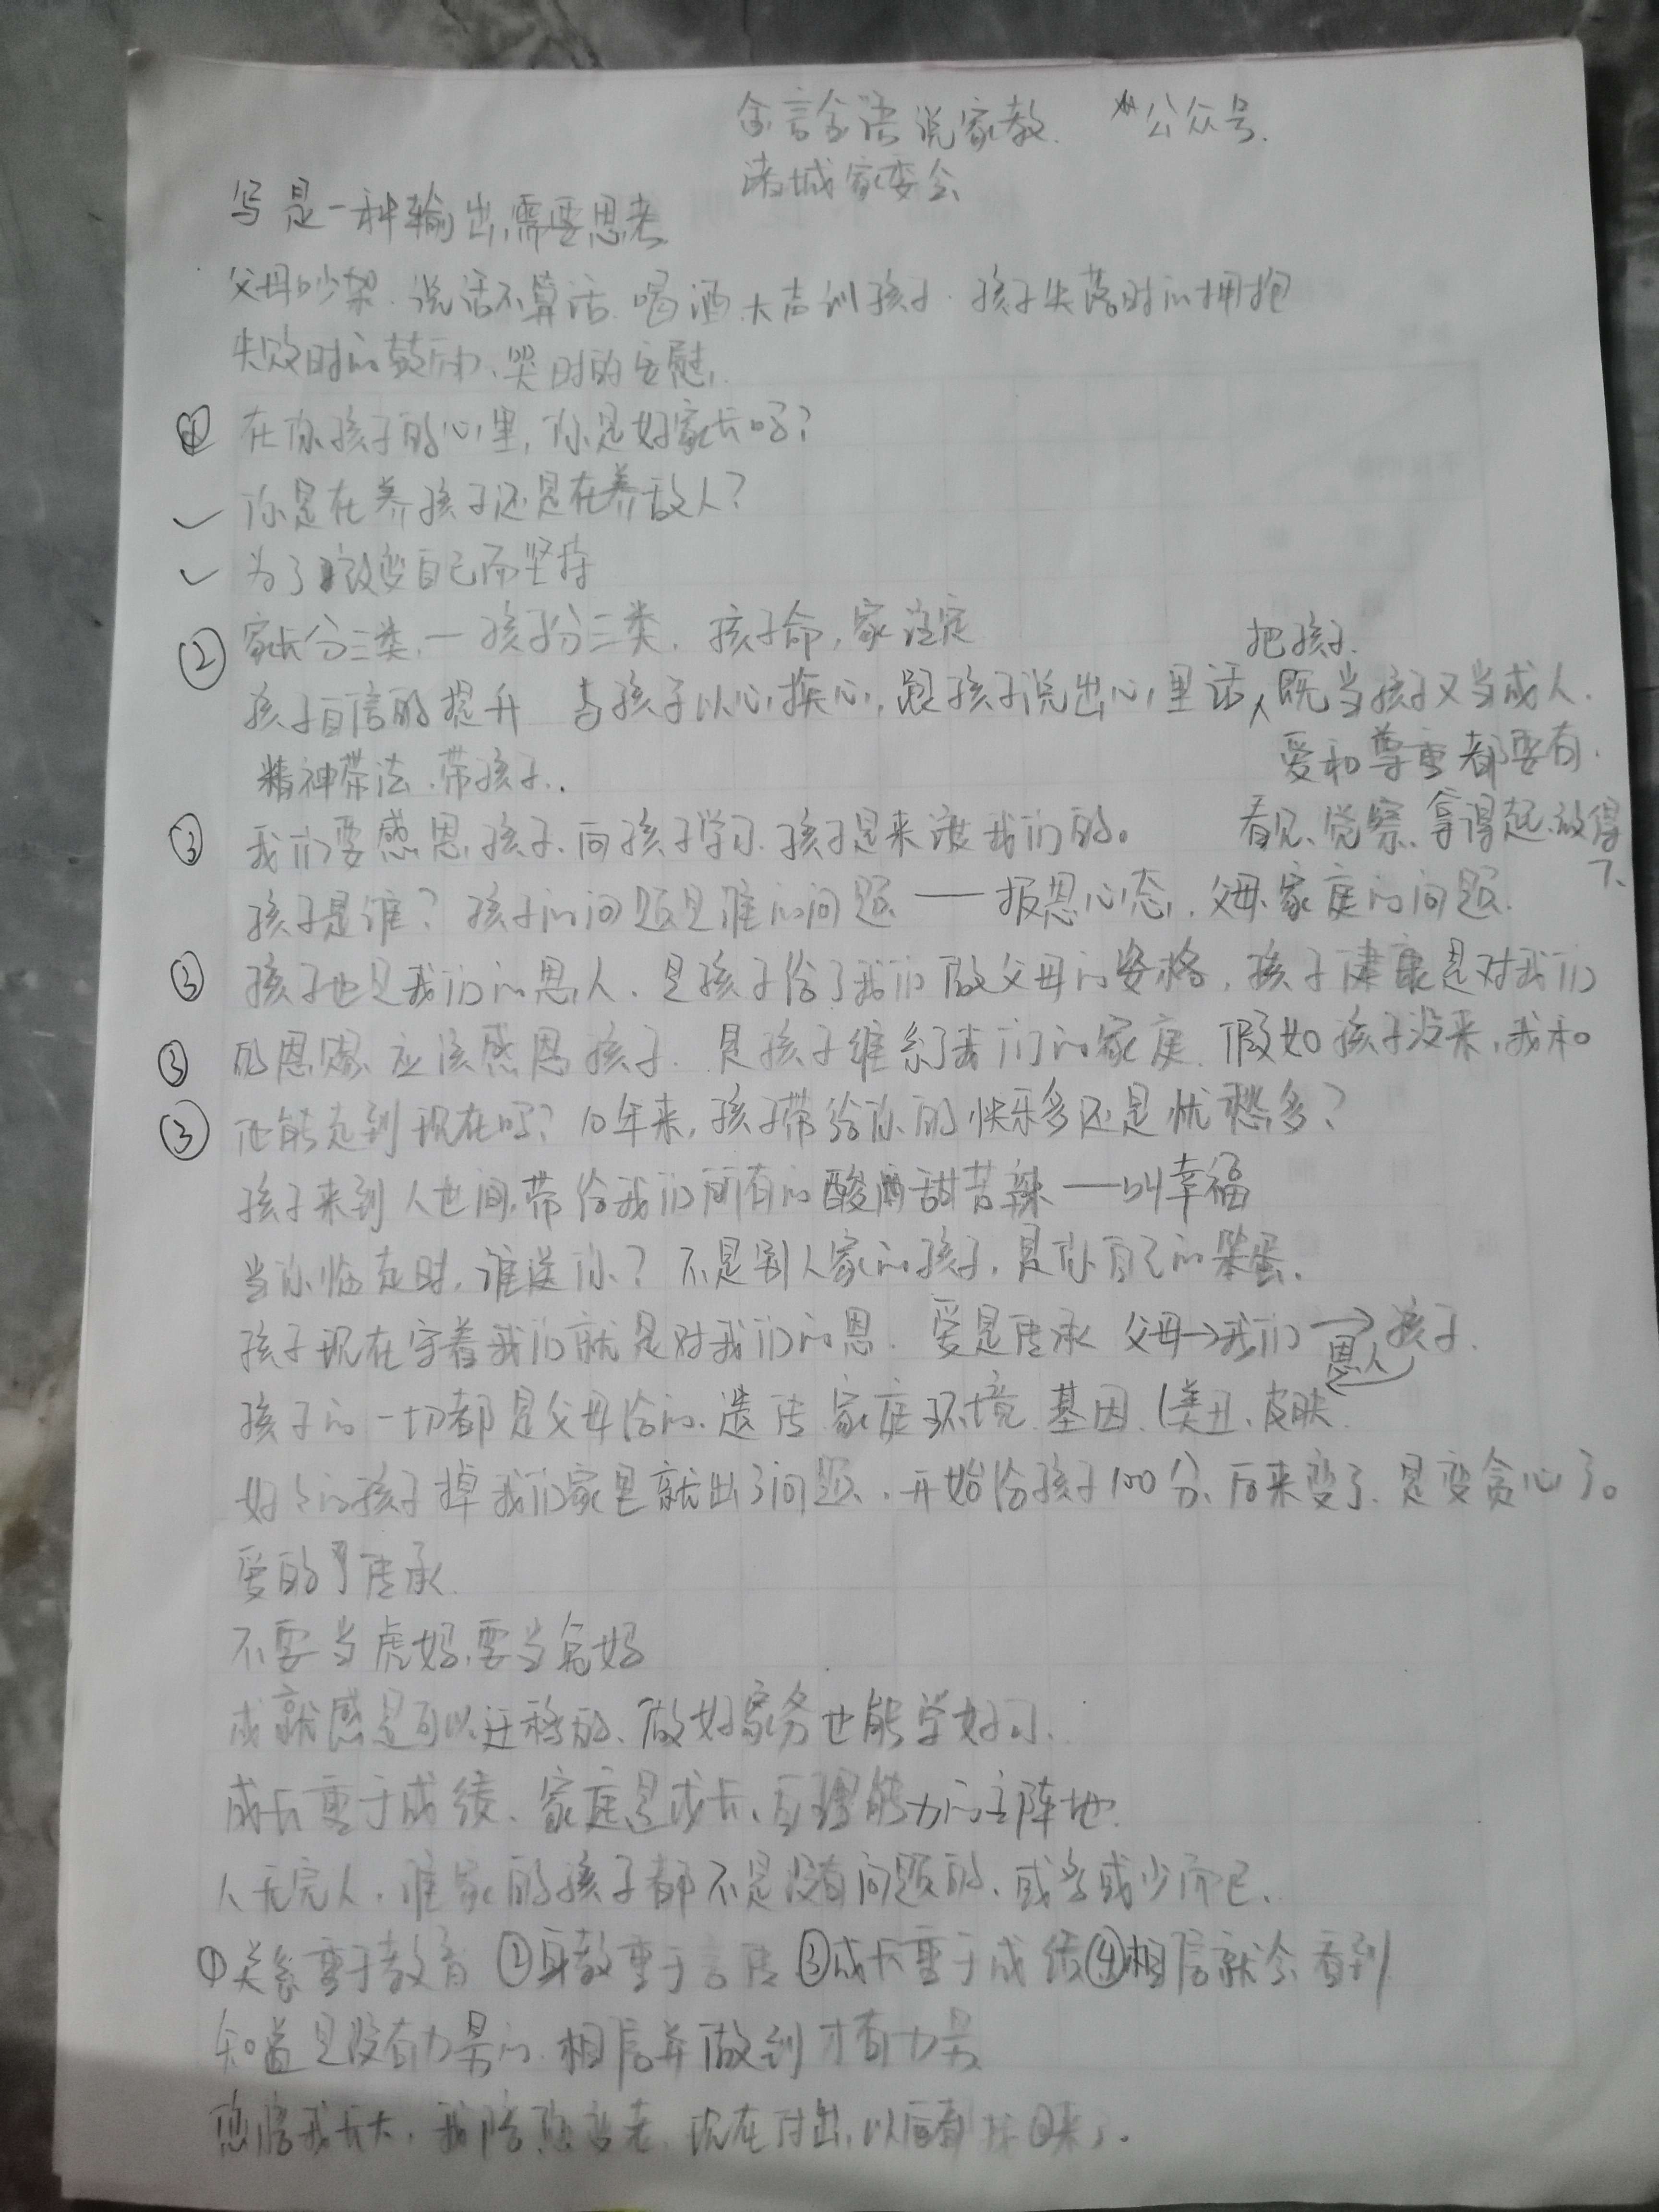 金言金语说家教. 公众号.
诸城家委会
写是一种输出,需要思考.
父母吵架.说话不算话.喝酒.大声训孩子.孩子失落时的拥抱
失败时的鼓励、哭时的安慰.
① 在你孩子的心里,你是好家长吗?
✓ 你是在养孩子还是在养敌人?
✓ 为了改变自己而坚持
② 家长分三类,一孩子分三类.孩子命,家注定
把孩子.
孩子自信的提升 与孩子以心换心,跟孩子说出心里话,既当孩子又当成人.
爱和尊重都要有.
精神带法.带孩子..
看见、觉察、拿得起、放得下、
③ 我们要感恩孩子.向孩子学习.孩子是来渡我们的。
孩子是谁?孩子的问题是谁的问题——报恩心态,父母.家庭的问题.
③ 孩子也是我们的恩人、是孩子给了我们做父母的资格,孩子健康是对我们
③ 的恩赐、应该感恩孩子.是孩子维系了我们的家庭.假如孩子没来,我和
③ 他能走到现在吗?10年来,孩子带给你的快乐多还是忧愁多?
孩子来到人世间,带给我们所有的酸甜苦辣——叫幸福
当你临走时,谁送你?不是别人家的孩子,是你自己的笨蛋.
孩子现在守着我们就是对我们的恩.爱是传承 父母→我们→孩子.
恩人
孩子的一切都是父母给的、遗传.家庭环境.基因.(美丑、皮肤.
好好的孩子掉我们家里就出了问题.开始给孩子100分、后来变了.是变贪心了。
爱的传承.
不要当虎妈,要当兔妈
成就感是可以迁移的、做好家务也能学好习.
成长重于成绩、家庭是成长、能力的主阵地.
人无完人,谁家的孩子都不是没有问题的、或多或少而已.
①关系重于教育 ②身教重于言传 ③成长重于成绩④相信就会看到
知道是没有力量的.相信并做到才有力量
您陪我长大,我陪您变老.现在付出,以后都找回来了.